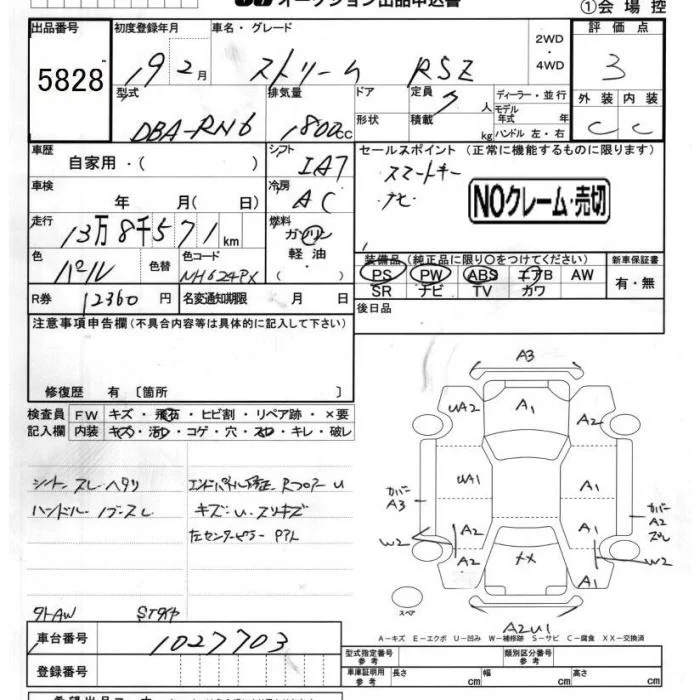 オークション出品申込書
①会場控
出品番号
5828
初度登録年月
19 2月
車名・グレード
ストリーム RSZ
2WD
・
4WD
評価点
3
外装 内装
C C
型式
DBA-RN6
排気量
1800cc
ドア
形状
定員
7人
積載
kg
ディーラー・並行
モデル
年式 年
ハンドル 左・右
車歴
自家用・( )
シフト
IA7
セールスポイント (正常に機能するものに限ります)
スマートキー
ナビ
NOクレーム・売切
車検
年 月( 日)
冷房
AC
走行
13万8千571km
燃料
ガソリン
軽油
( )
色
パール
色替
色コード
NH624PX
装備品 (純正品に限り○をつけてください)
PS PW ABS エアB AW
SR ナビ TV カワ
新車保証書
有・無
R券
12360 円
名変通知期限 月 日
後日品
注意事項申告欄(不具合内容等は具体的に記入して下さい)
修復歴 有 〔箇所 〕
検査員
記入欄
FW キズ・飛石・ヒビ割・リペア跡・×要
内装 キズ・汚れ・コゲ・穴・スレ・キレ・破レ
シート スレ ヘタリ
ハンドル スレ
キズ・U・スリキズ
左センターピラー
外AW
A3
UA2 A1 A2
UA1 A1
カバー
A3
カバー
A2
スレ
W2 A2 A1 W2
A2 XX A1
スペア
A2U1
A-キズ E-エクボ U-凹み W-補修跡 S-サビ C-腐食 XX-交換済
車台番号
1027703
登録番号
型式指定番号
参考
類別区分番号
参考
車庫証明用
参考
長さ cm 幅 cm 高さ cm